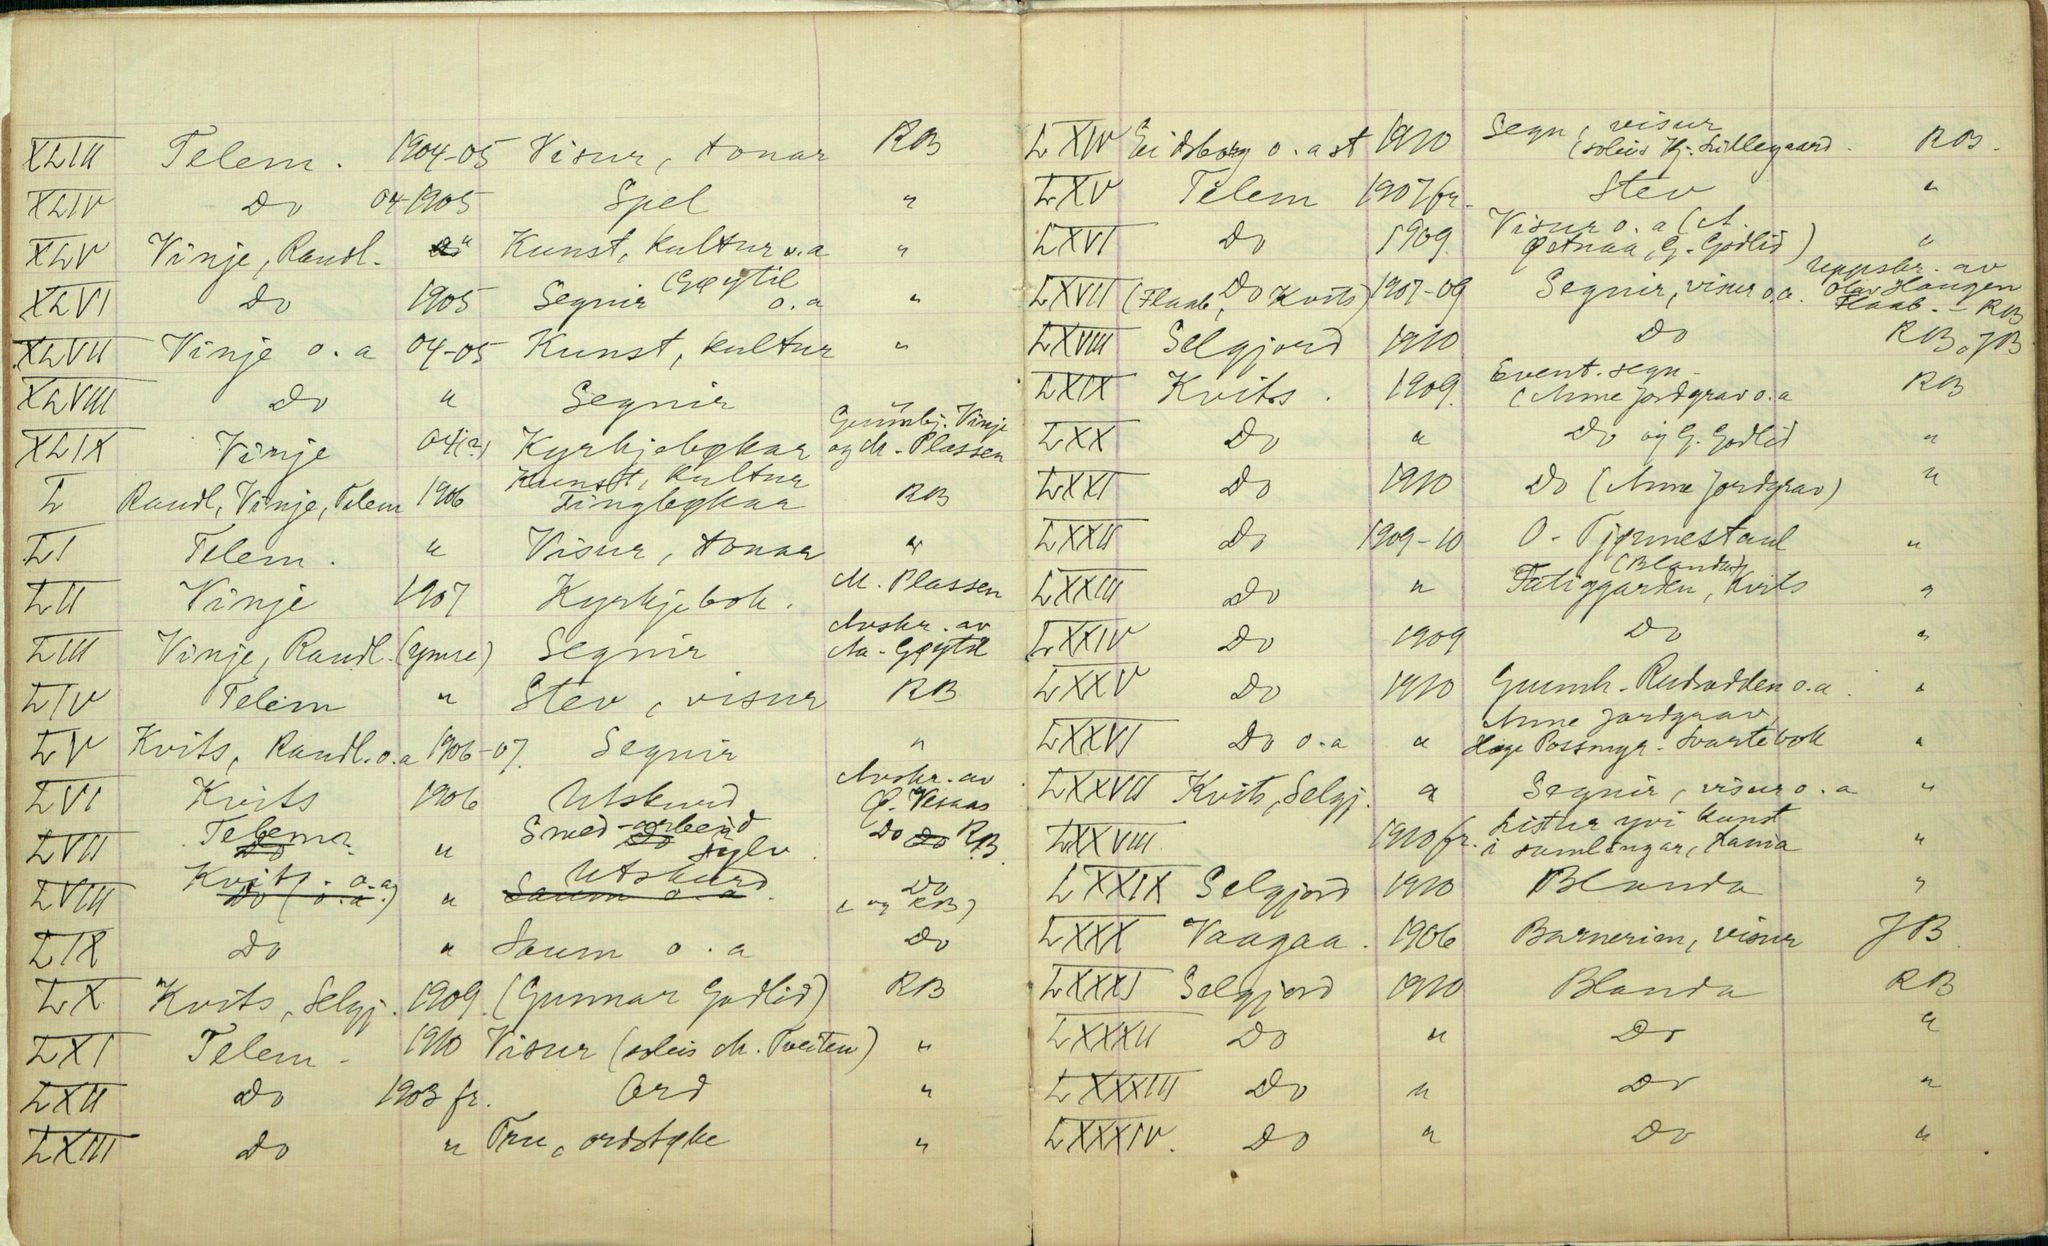 XLIII Telem. 1904-05 Visur, tonar RB
XLIV Do 04-1905 Spel "
XLV Vinje, Raudl. " Kunst, kultur o.a "
XLVI Do 1905 Segnir (Gøytil o.a "
XLVII Vinje o.a 04-05 Kunst, kultur "
XLVIII Do " Segnir
XLIX Vinje 04(?) Kyrkjebøkar Gunnbj. Vinje og M. Plassen
L Raudl, Vinje, Telem 1906 Kunst, kultur Tingbøkar RB
LI Telem. " Visur, tonar "
LII Vinje 1907 Kyrkjebok. M. Plassen
LIII Vinje, Raudl. (ymse) Segnir Avskr. av Aa. Gøytil
LIV Telem " Stev, visur RB
LV Kvits, Raudl. o.a 1906-07. Segnir "
LVI Kvits 1906 Utskurd Avskr. av Ø. Vesaas
LVII Telema. Do " Smed-arbeid Do sylv. Do Do RB.
LVIII Kvits. o.a Do (o.a.) " Utskurd Saum o.a. Do (og RB)
LIX Do " Saum o.a Do
LX Kvits, Selgj. 1909. (Gunnar Godlid) RB
LXI Telem. 1910 Visur (soleis M. Tveiten) "
LXII Do 1903 fr. Ord "
LXIII Do " Tru, ordtøke "
LXIV Eidsborg o.a st 1910 Segn, visur (soleis Hj. Lillegaard. RB.
LXV Telem 1907 fr. Stev "
LXVI Do 1909. Visur o.a (A. Øtnaa, G. Godlid) "
LXVII (Flaab, Do Kvits) 1907-09 Segnir, visur o.a. uppskr. av Olav Haugen Flaab. - RB
LXVIII Selgjord 1910 Do RB, JB
LXIX Kvits. 1909. Event. segn. (Anne Jordgrav o.a RB
LXX Do " Do og G. Godlid "
LXXI Do 1910 Do (Anne Jordgrav) "
LXXII Do 1909-10 O. Tjønnestaul "
LXXIII Do " (Blanda) Fatiggarden, Kvits "
LXXIV Do 1909 Do "
LXXV Do 1910 Gunnh. Rudsodden o.a. "
LXXVI Do o.a " Anne Jordgrav, Høge Possmyr. Svartebok "
LXXVII Kvits, Selgj. " Segnir, visur o.a "
LXXVIII 1910 fr. Listur yvi kunst i samlingar, "
LXXIX Selgjord 1910 Blanda "
LXXX Vaagaa. 1906 Barnerim, visur JB.
LXXXI Selgjord 1910 Blanda RB
LXXXII Do " Do "
LXXXIII Do " Do "
LXXXIV. Do " Do "